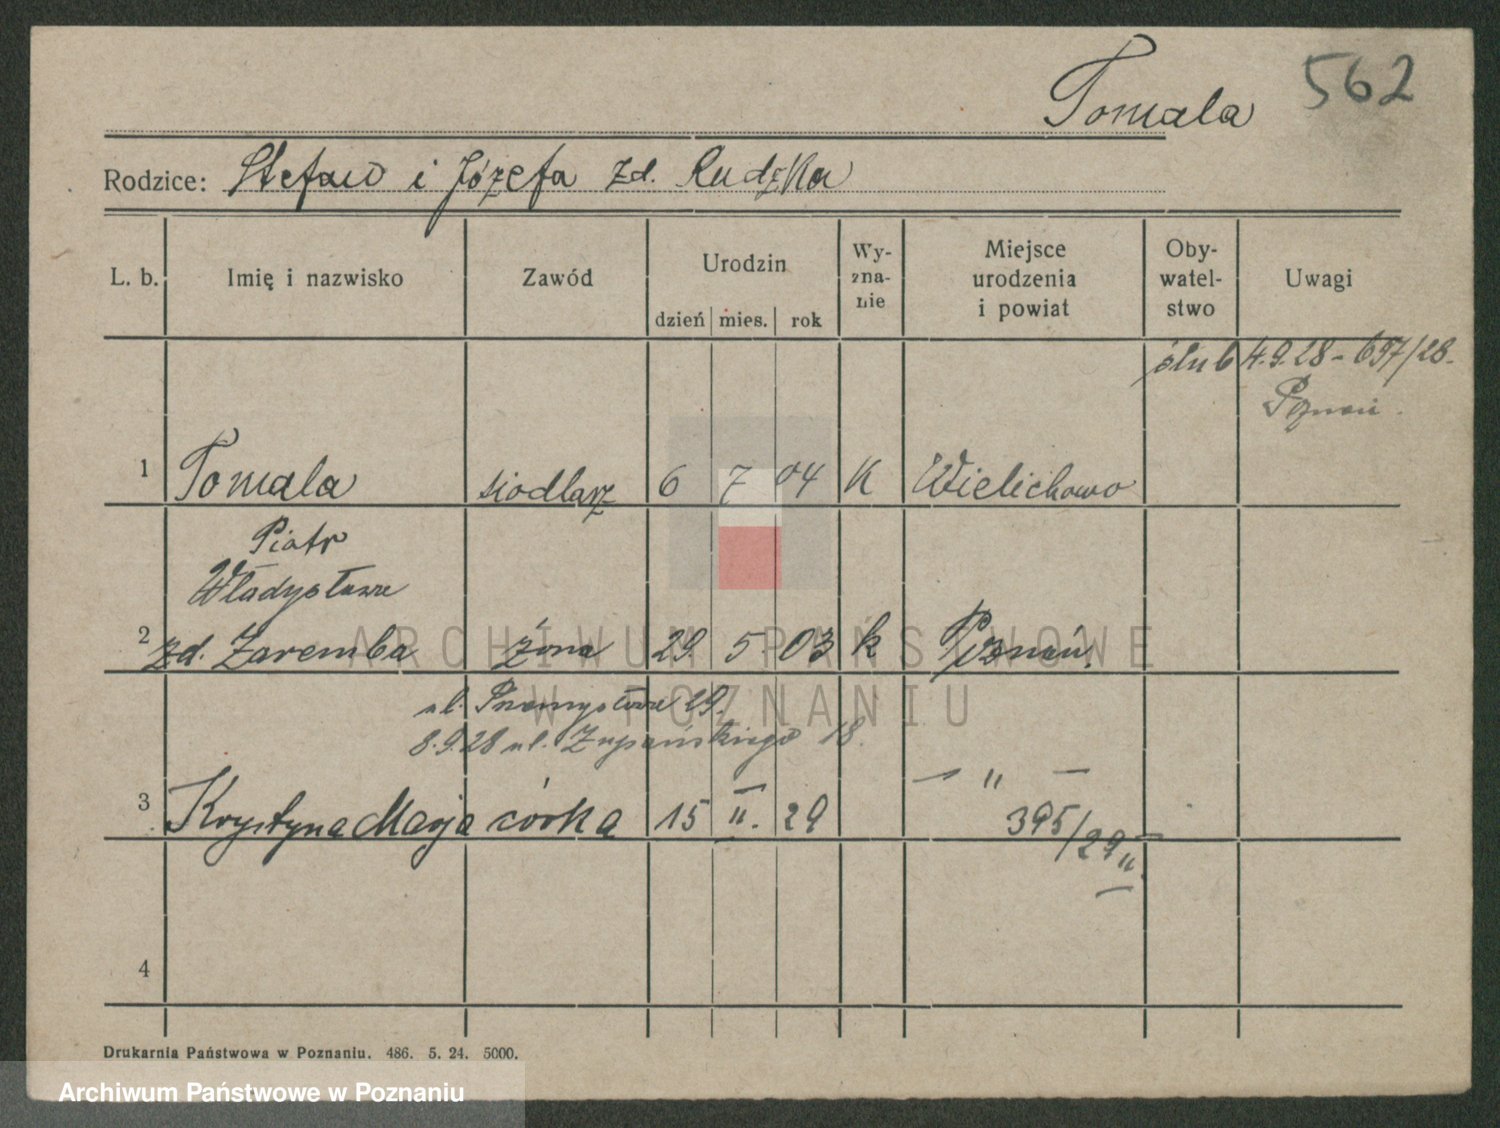 Tomala 562
Rodzice: Stefan i Józefa zd. Rudzka
L. b. Imię i nazwisko Zawód Urodzin dzień mies. rok Wy-zna-nie Miejsce urodzenia i powiat Oby-watel-stwo Uwagi
ślub 4.9.28 - 697/28.
Poznań.
1 Tomala siodlarz 6 7 04 K Wielichowo
Piotr
Władysława
2 zd. Zaremba żona 29. 5. 03 k Poznań.
ul. Przemysłowa 29.
8.9.28 ul. Żupańskiego 18.
3 Krystyna Marja córka 15 II. 29 — " —
395/29 II.
4
Drukarnia Państwowa w Poznaniu. 486. 5. 24. 5000.
ARCHIWUM PAŃSTWOWE
W POZNANIU
Archiwum Państwowe w Poznaniu